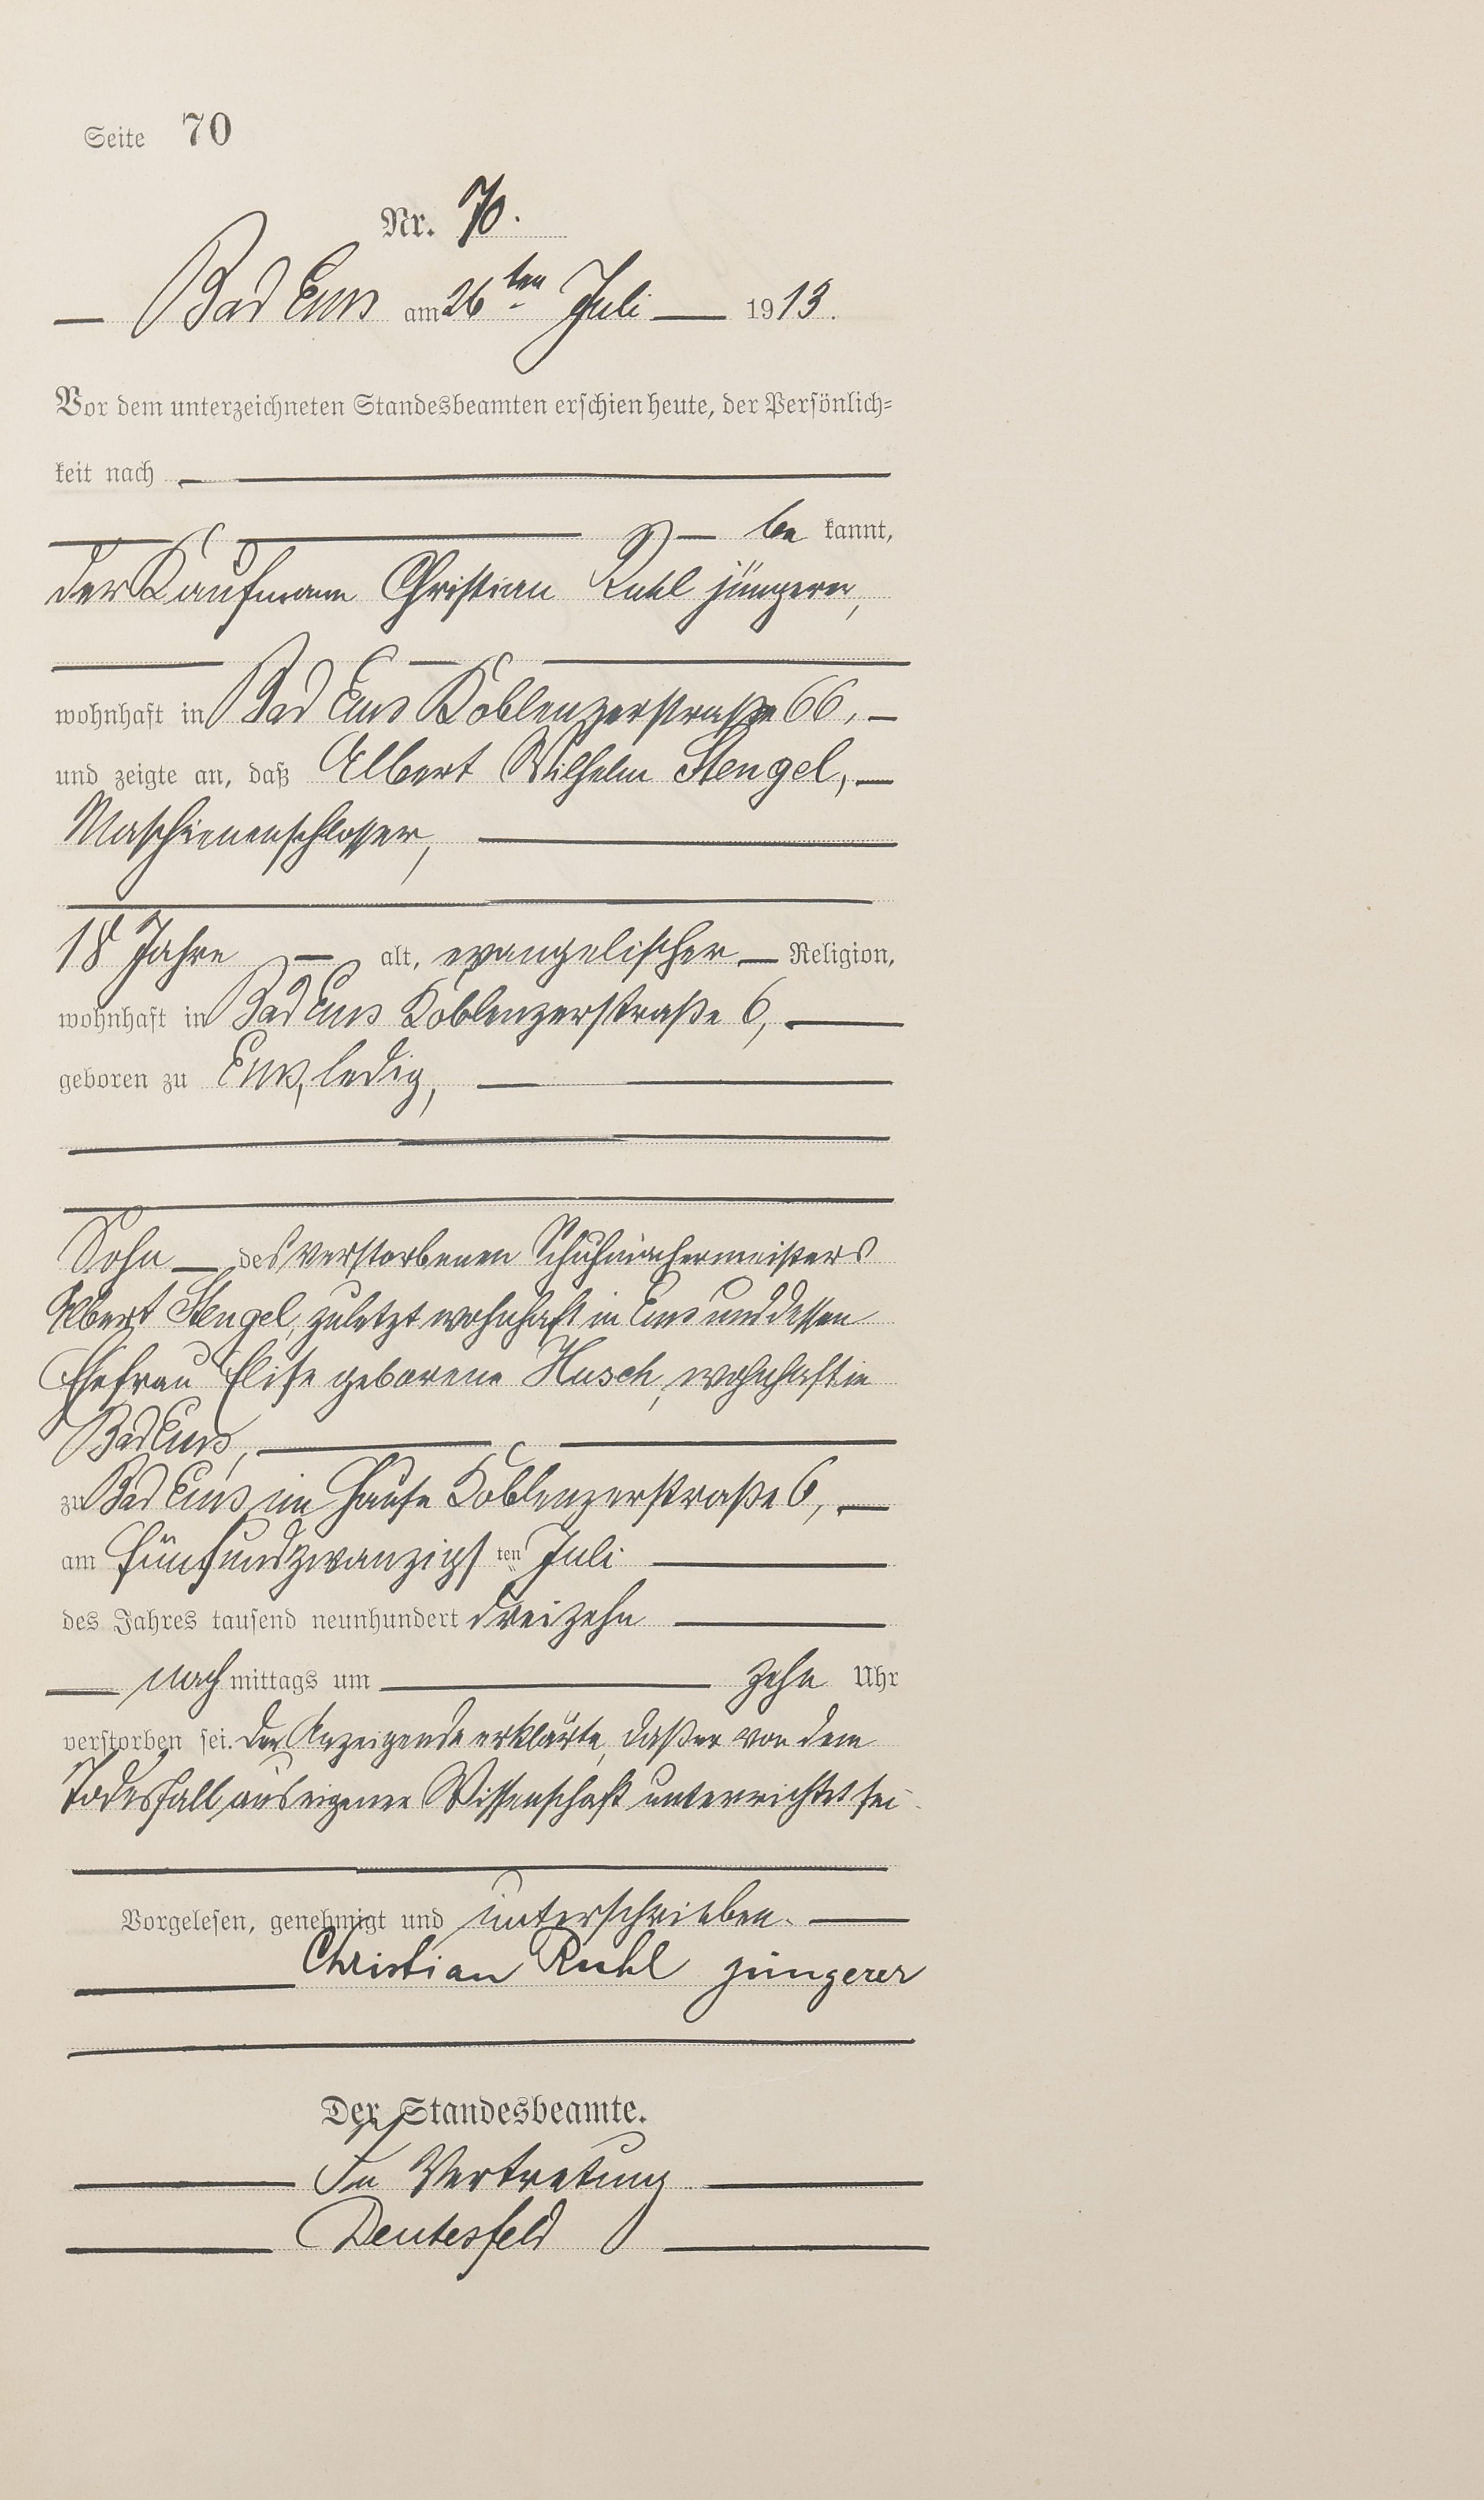 Seite 70
Nr. 70.
Bad Ems am 26ten Juli 1913.
Vor dem unterzeichneten Standesbeamten erschien heute, der Persönlich=
keit nach
be kannt,
der Kaufmann Christian Ruhl jüngerer,
wohnhaft in Bad Ems Koblenzerstraße 66,
und zeigte an, daß Albert Wilhelm Stengel,
Maschienenschlosser,
18 Jahre alt, evangelischer Religion,
wohnhaft in Bad Ems Koblenzerstraße 6,
geboren zu Ems, ledig,
Sohn des verstorbenen Schuhmachermeisters
Albert Stengel, zuletzt wohnhaft in Ems und dessen
Ehefrau Elise geborene Husch, wohnhaft in
Bad Ems,
zu Bad Ems im Hause Koblenzerstraße 6,
am fünfundzwanzigsten Juli
des Jahres tausend neunhundert dreizehn
nach mittags um zehn Uhr
verstorben sei. Der Anzeigende erklärte, daß er von dem
Todesfall aus eigener Wissenschaft unterrichtet sei.
Vorgelesen, genehmigt und unterschrieben.
Christian Ruhl jüngerer
Der Standesbeamte.
In Vertretung
Deutesfeld